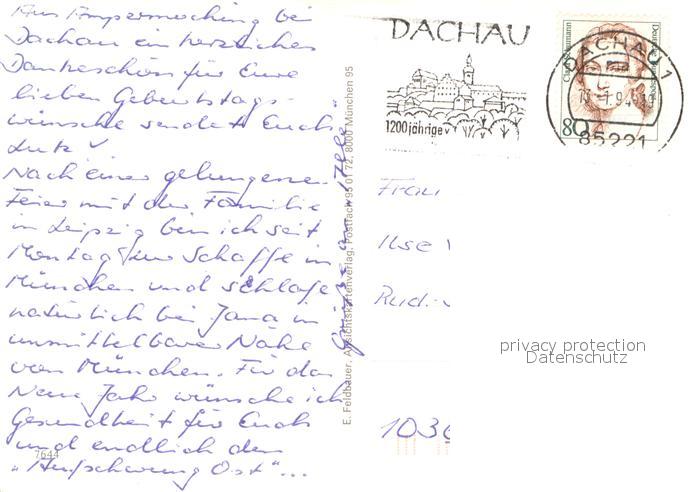 Aus Ampermoching bei
Dachau ein herzliches
Dankeschön für Eure
lieben Geburtstags-
wünsche sendet Euch
Lutz
Nach einer gelungenen
Feier mit der Familie
in Leipzig bin ich seit
Montag zur Schaffe in
München und schlafe
natürlich bei Jana in
unmittelbarer Nähe
von München. Für das
Neue Jahr wünsche ich
Gesundheit für Euch
und endlich den
"Aufschwung Ost"...
7644
E. Feldbauer, Ansichtskartenverlag, Postfach 95 01 72, 8000 München 95
DACHAU
1200 jährige
DACHAU 1
85221
80
Frau
Ilse
Rud
privacy protection
Datenschutz
1036